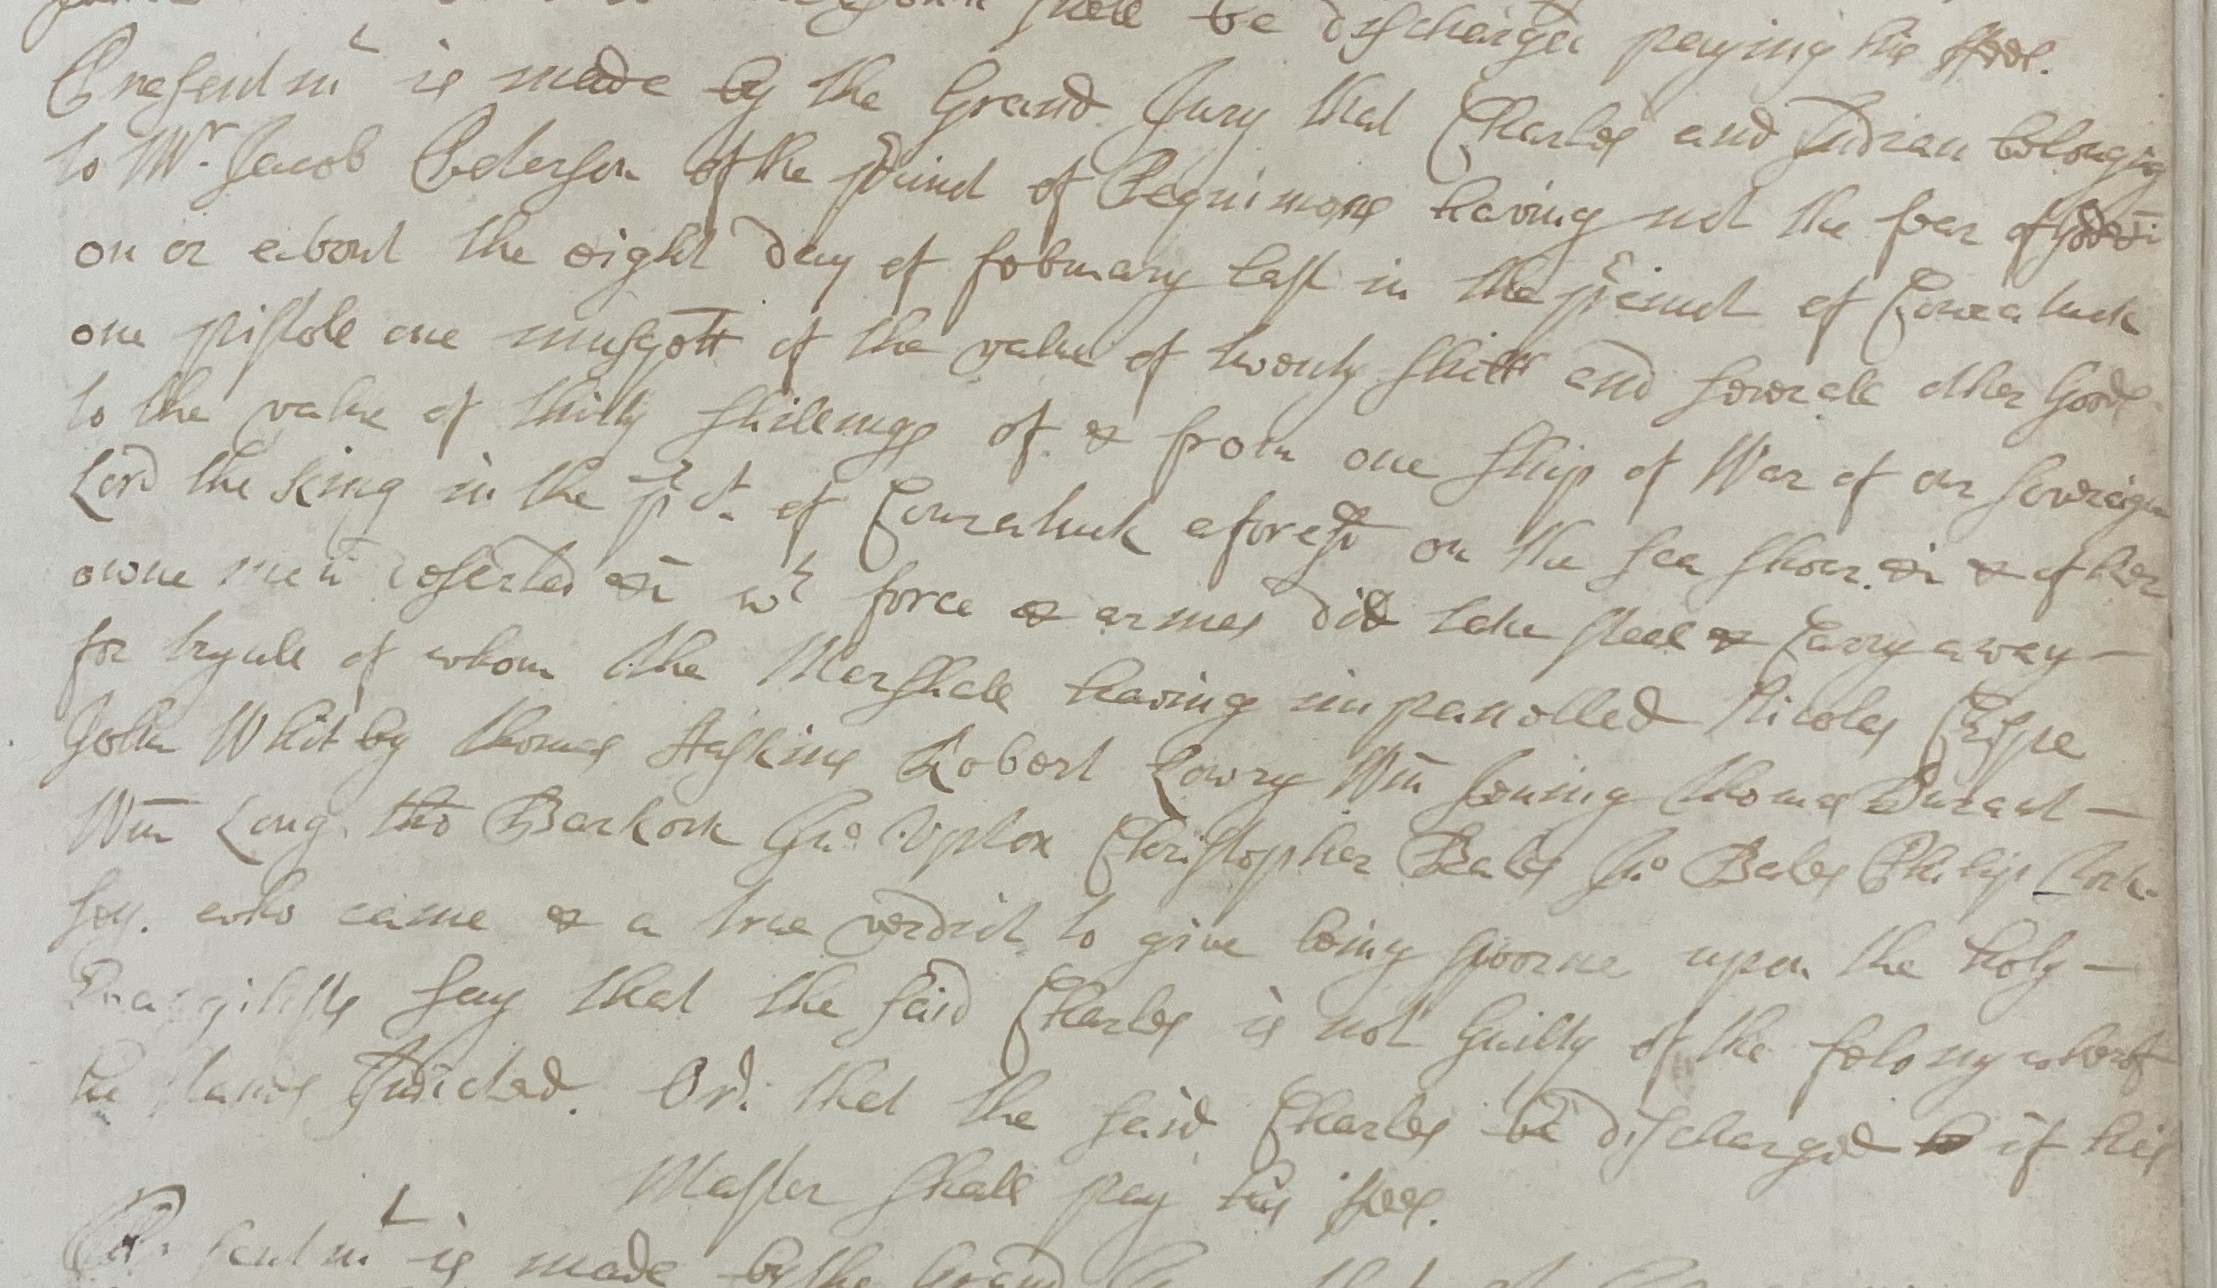 shall be discharged paying his ffees.
Presentmt is made by the Grand Jury that Charles and Indian belonging
to Mr. Jacob Peterson of the pcinct of Pequimons having not the fear of God &c
on or about the eight day of febmary last in the pcinct of Coratuck
one pistole one musgott of the value of twenty shills and severall other Goods
to the value of thirty shillings of & from one ship of War of our Soveraign
Lord the King in the pct. of Coratuck aforesd on the sea shoar &c & of her
owne men deserted &c wt force & armes did take steal & Carry away —
for tryall of whom the Marshall having impanolled Nicoles Crispe
John Whitby thomas Haskins Robert Lowry Wm Joning thomas Durant —
Wm Long tho Barkock Jno Upton Christopher Bales Jno Bales Philip
who came & a true verdict to give being sworne upon the holy —
Evangilists say that the said Charles is not Guilty of the felony whereof
he stands Indicted. Ord. that the said Charles be discharged if his
Master shall pay his ffees.
Presentmt is made by the Grand